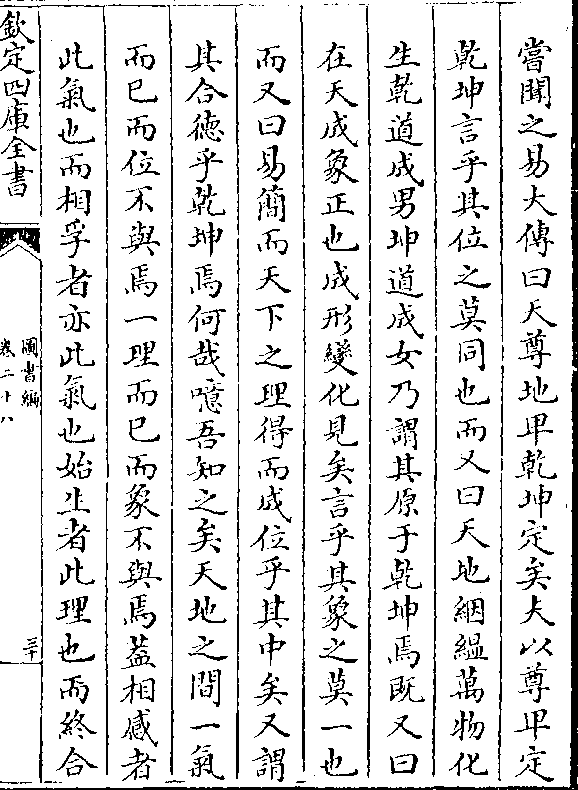 嘗聞之易大傳曰天尊地卑乾坤定矣夫以尊卑定
乾坤言乎其位之莫同也而又曰天地絪縕萬物化
生乾道成男坤道成女乃謂其原于乾坤焉既又曰
在天成象正也成形變化見矣言乎其象之莫一也
而又曰易簡而天下之理得而成位乎其中矣又謂
其合德乎乾坤焉何哉噫吾知之矣天地之間一氣
而已而位不與焉一理而已而象不與焉蓋相感者
此氣也而相孚者亦此氣也始生者此理也而終合
欽定四庫全書
圖書編
卷二十八
三十